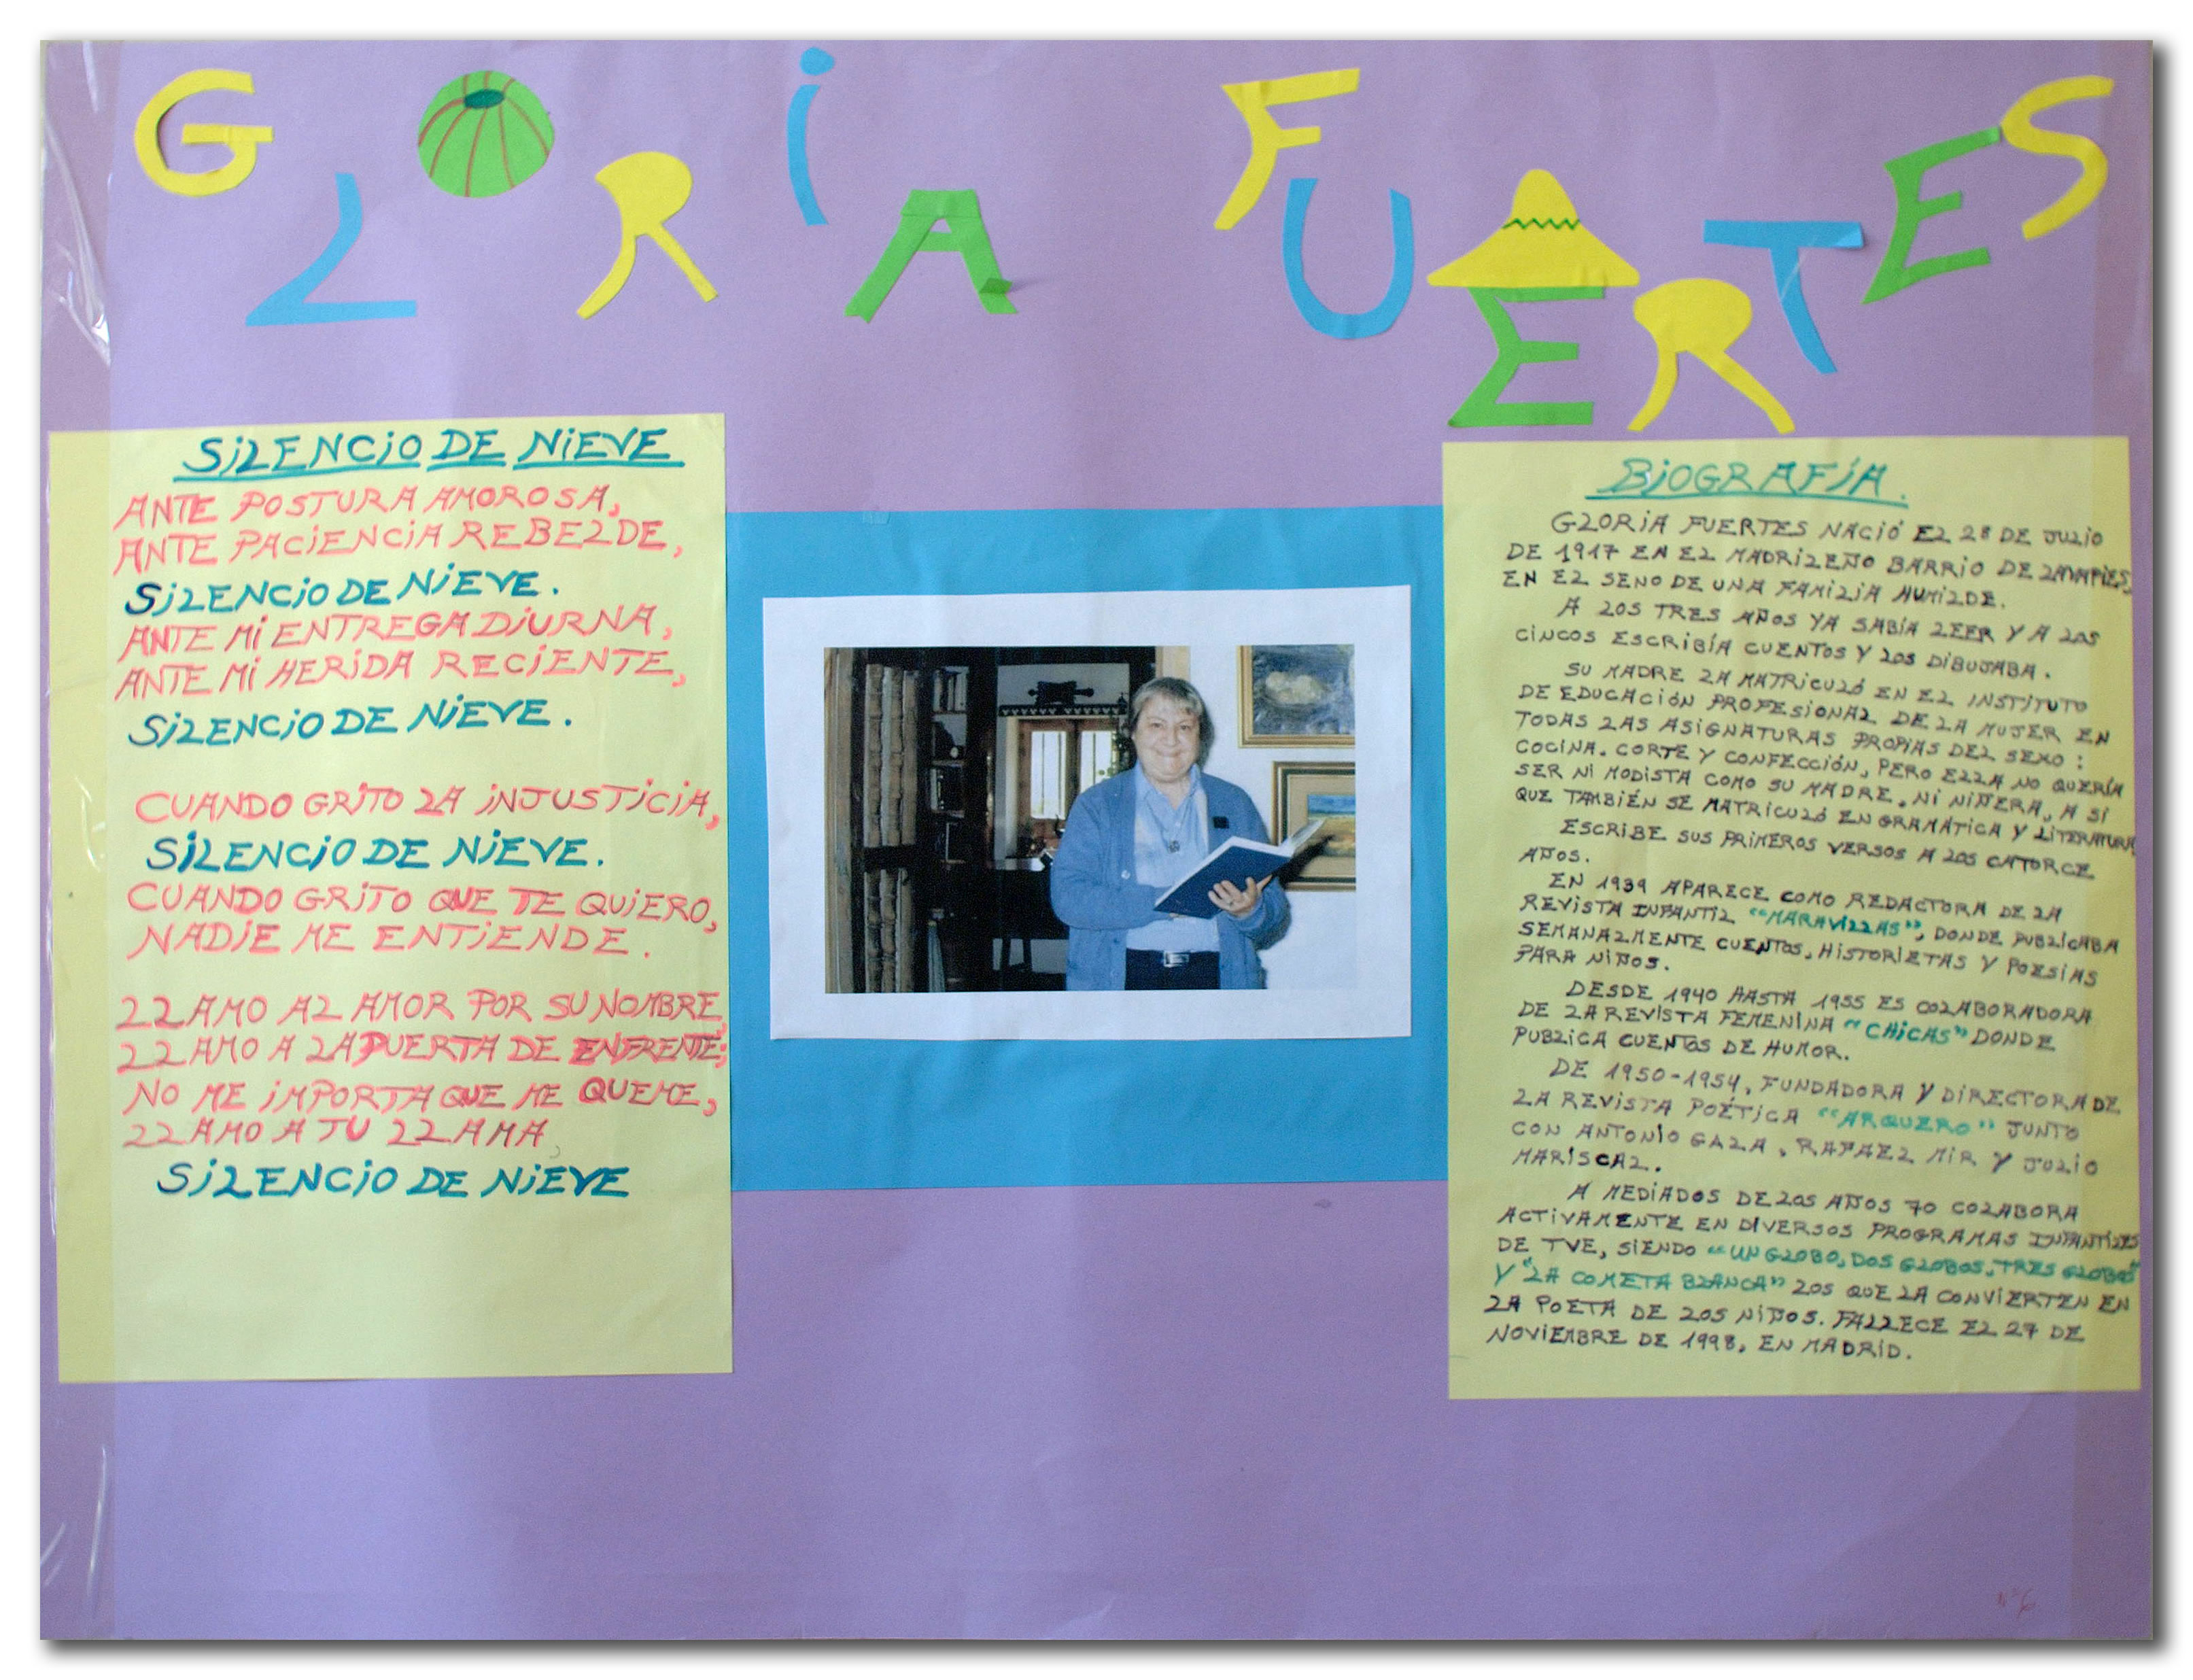 GLORIA FUERTES
SILENCIO DE NIEVE
ANTE POSTURA AMOROSA,
ANTE PACIENCIA REBELDE,
SILENCIO DE NIEVE.
ANTE MI ENTREGA DIURNA,
ANTE MI HERIDA RECIENTE,
SILENCIO DE NIEVE.
CUANDO GRITO LA INJUSTICIA,
SILENCIO DE NIEVE.
CUANDO GRITO QUE TE QUIERO,
NADIE ME ENTIENDE.
LLAMO AL AMOR POR SU NOMBRE,
LLAMO A LA PUERTA DE ENFRENTE;
NO ME IMPORTA QUE ME QUEME,
LLAMO A TU LLAMA,
SILENCIO DE NIEVE
BIOGRAFÍA.
GLORIA FUERTES NACIÓ EL 28 DE JULIO
DE 1917 EN EL MADRILEÑO BARRIO DE LAVAPIES,
EN EL SENO DE UNA FAMILIA HUMILDE.
A LOS TRES AÑOS YA SABÍA LEER Y A LOS
CINCOS ESCRIBÍA CUENTOS Y LOS DIBUJABA.
SU MADRE LA MATRICULÓ EN EL INSTITUTO
DE EDUCACIÓN PROFESIONAL DE LA MUJER EN
TODAS LAS ASIGNATURAS PROPIAS DEL SEXO:
COCINA. CORTE Y CONFECCIÓN, PERO ELLA NO QUERÍA
SER NI MODISTA COMO SU MADRE. NI NIÑERA, A SÍ
QUE TAMBIÉN SE MATRICULÓ EN GRAMÁTICA Y LITERATURA
ESCRIBE SUS PRIMEROS VERSOS A LOS CATORCE
AÑOS.
EN 1939 APARECE COMO REDACTORA DE LA
REVISTA INFANTIL "MARAVILLAS", DONDE PUBLICABA
SEMANALMENTE CUENTOS, HISTORIETAS Y POESÍAS
PARA NIÑOS.
DESDE 1940 HASTA 1955 ES COLABORADORA
DE LA REVISTA FEMENINA "CHICAS" DONDE
PUBLICA CUENTOS DE HUMOR.
DE 1950-1954, FUNDADORA Y DIRECTORA DE
LA REVISTA POÉTICA "ARQUERO" JUNTO
CON ANTONIO GALA, RAFAEL MIR Y JULIO
MARISCAL.
A MEDIADOS DE LOS AÑOS 70 COLABORA
ACTIVAMENTE EN DIVERSOS PROGRAMAS INFANTILES
DE TVE, SIENDO "UN GLOBO, DOS GLOBOS, TRES GLOBOS"
Y "LA COMETA BLANCA" LOS QUE LA CONVIERTEN EN
LA POETA DE LOS NIÑOS. FALLECE EL 27 DE
NOVIEMBRE DE 1998, EN MADRID.